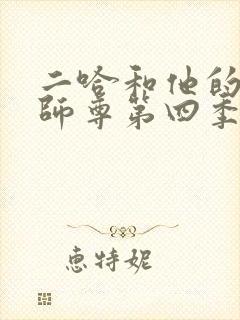 二哈和他的
師尊第四季
惠特妮